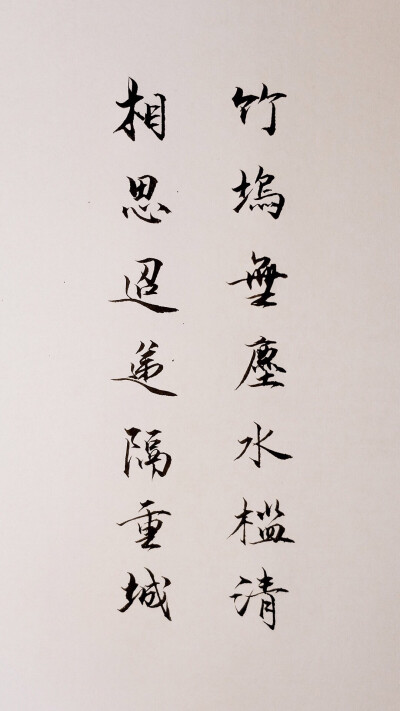 竹塢無塵水槛清
相思迢递隔重城